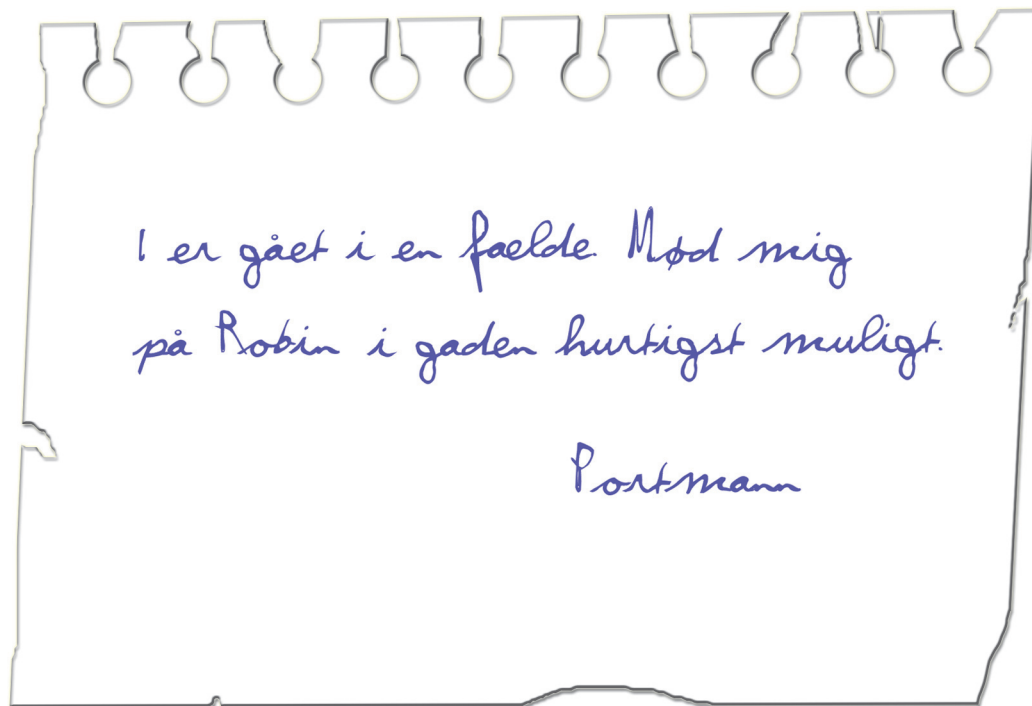 I er gået i en faelde. Mød mig
på Robin i gaden hurtigst muligt.
Portmann